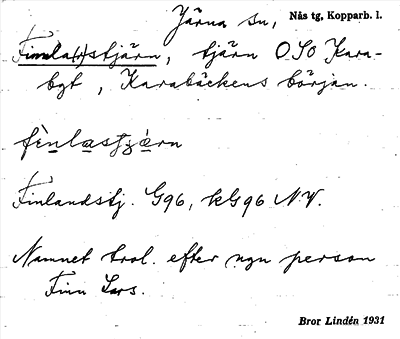 Järna sn, Nås tg, Kopparb. l.
Finnla(r)stjärn, tjärn OSO Kara-
bgt, Karabäckens början.
fènlastjǽrn
Finlandstj. G96, kG96 N.V.
Namnet trol. efter ngn person
Finn Lars.
Bror Lindén 1931